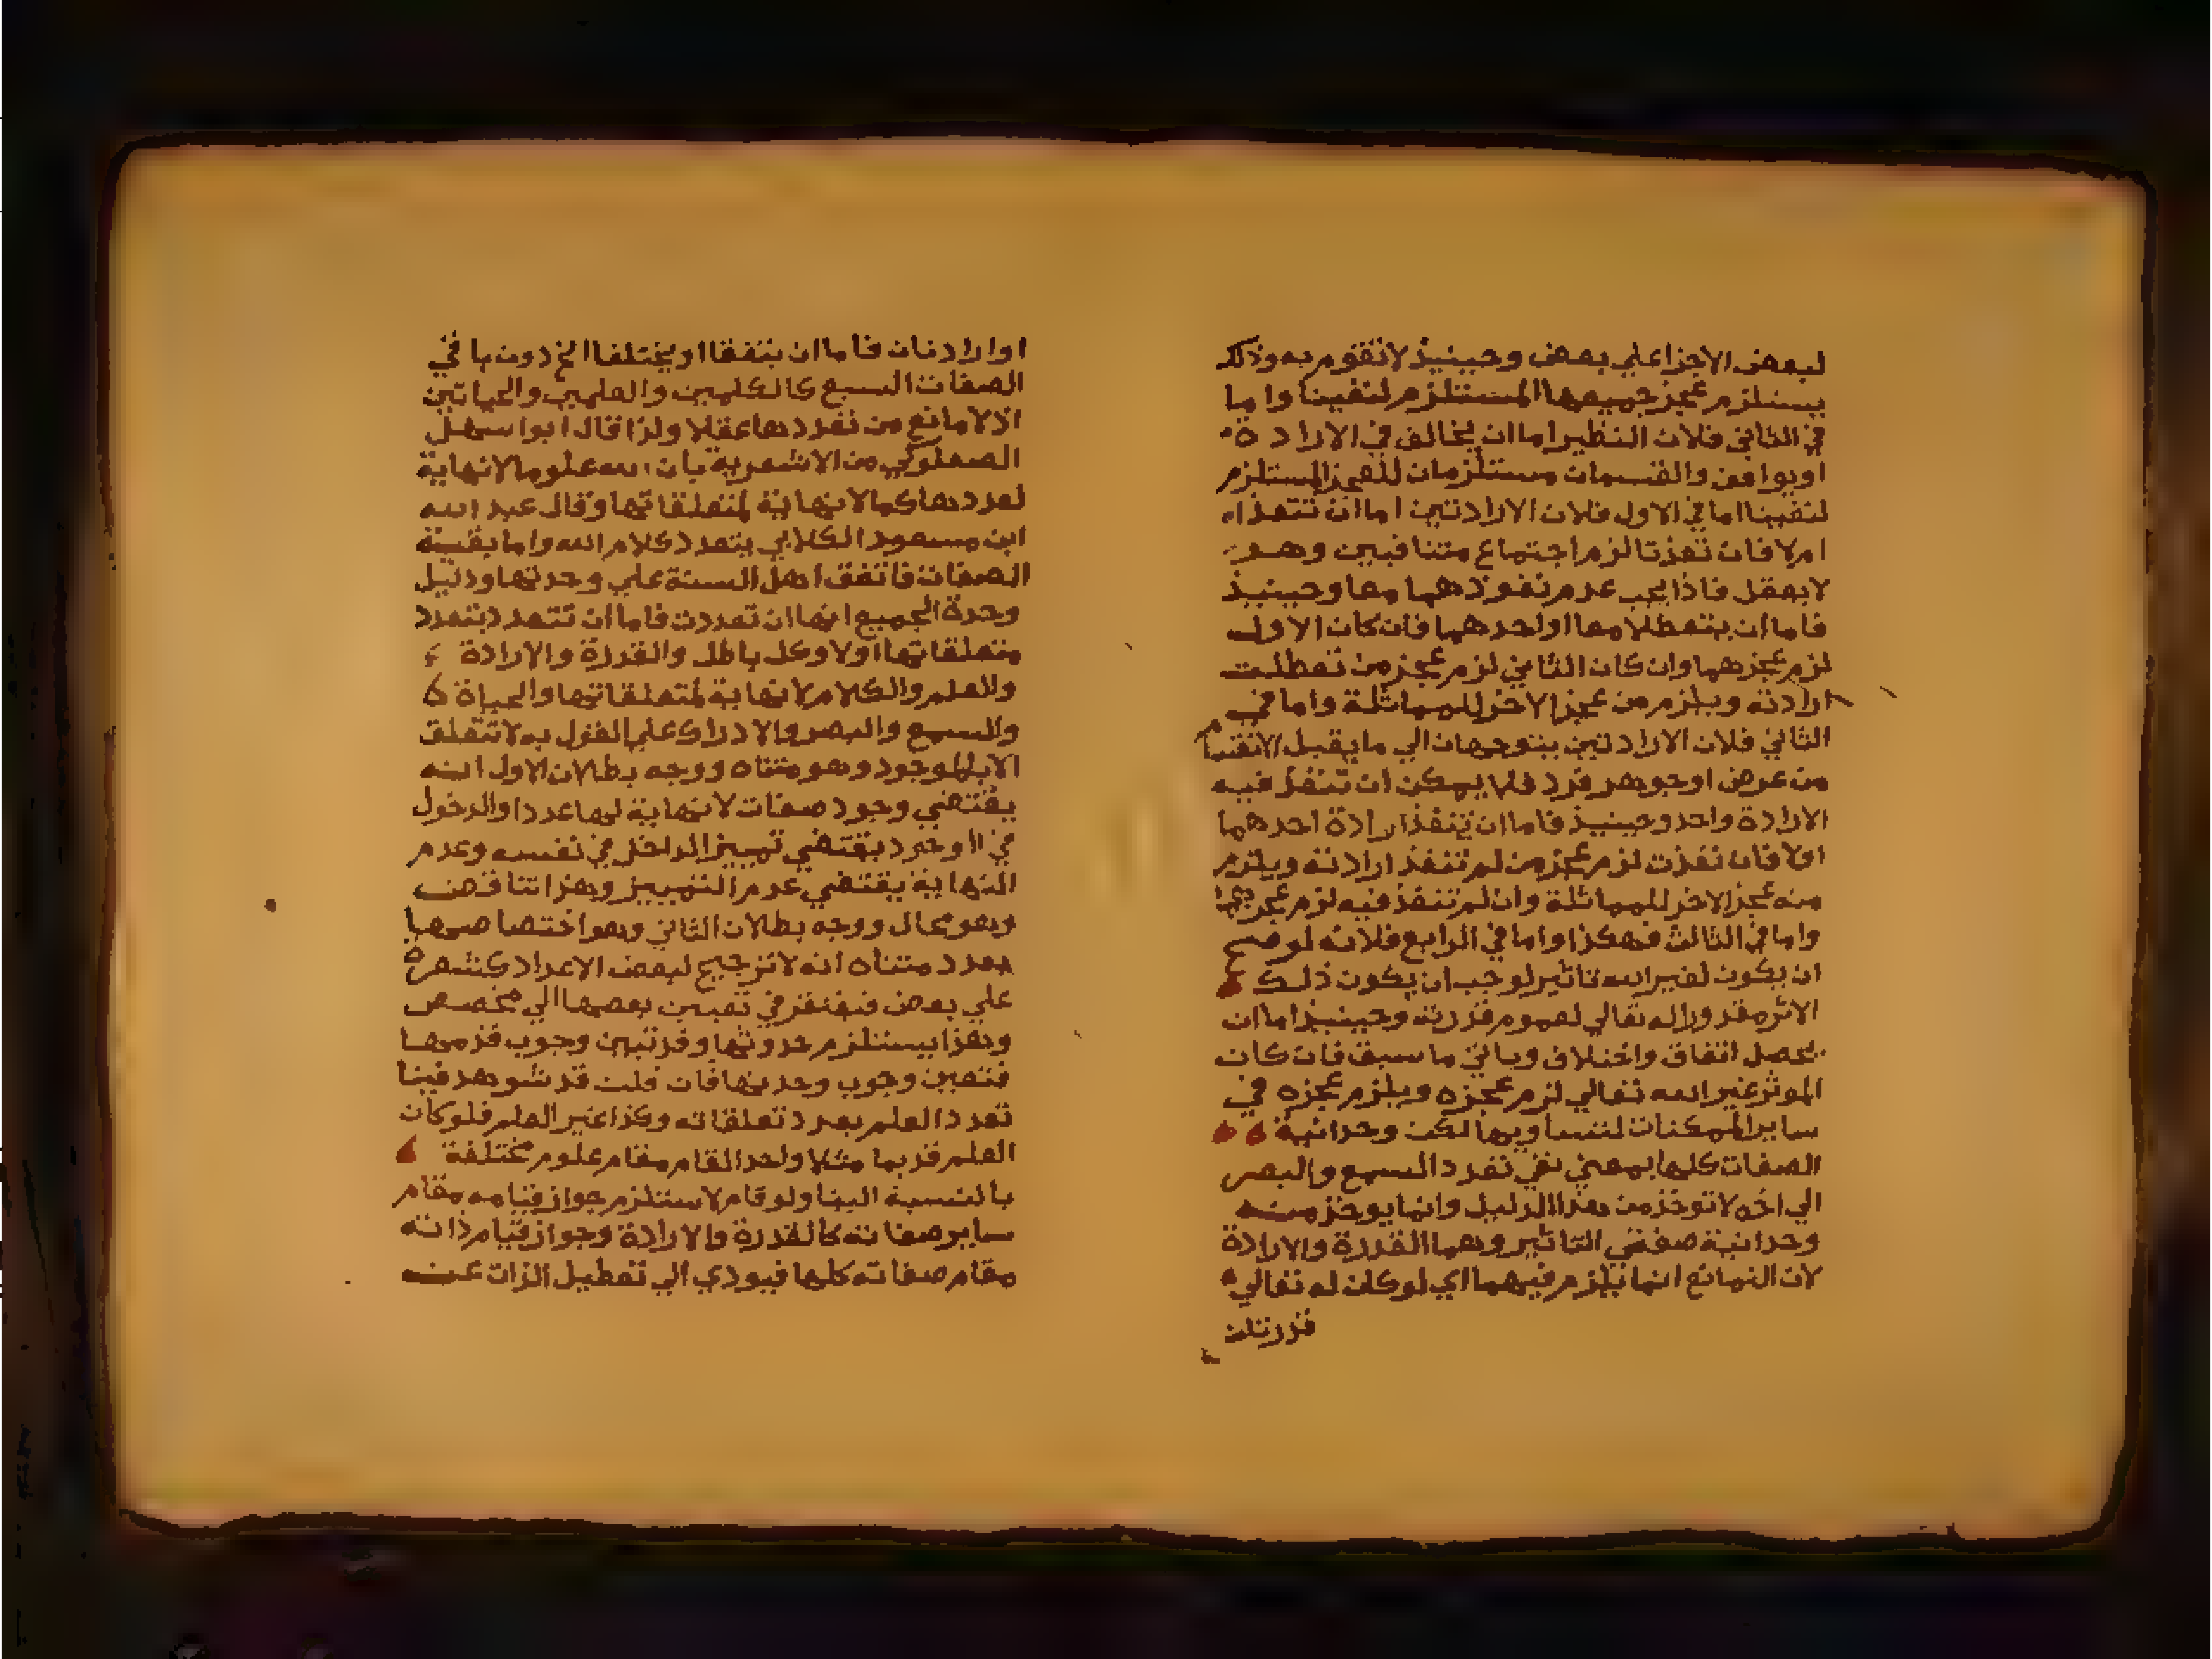 لبعض الاجزا علي بعض وحينيذ لا تقوم به وذلك
يستلزم عجز جميعها المستلزم لنفينا واما
في الثاني فلان النظير اما ان يخالف في الارادة
او يوافق والقسمان مستلزمان للعجز المستلزم
لنفينا اما في الاول فلان الارادتين اما ان تنفذا
ام لا فان نفذتا لزم اجتماع متنافيين وهو
لا يعقل فاذا يجب عدم نفوذهما معا وحينيذ
فاما ان يتعطلا معا او احدهما فان كان الاول
لزم عجزهما وان كان الثاني لزم عجز من تعطلت
ارادته ويلزم من عجز الاخر للمماثلة واما في
الثاني فلان الارادتين يتوجهان الي ما يقبل الانقسام
من عرض او جوهر فرد فلا يمكن ان تنفذ فيه
الارادة واحد وحينيذ فاما ان تنفذ ارادة احدهما
او لا فان نفذت لزم عجز من لم تنفذ ارادته ويلزم
منه عجز الاخر للمماثلة وان لم تنفذ فيه لزم عجزهما
واما في الثالث فهكذا واما في الرابع فلانه لو صح
ان يكون لغير الله تاثير لوجب ان يكون ذلك
الاثر مقدورا له تعالي لعموم قدرته وحينيذ اما ان
يحصل اتفاق واختلاف وياتي ما سبق فان كان
الموثر غير الله تعالي لزم عجزه ويلزم عجزه في
ساير الممكنات لتساويها لكن وحدانية
الصفات كلها بمعني نفي تعدد السمع والبصر
الي اخره لا توخذ من هذا الدليل وانما يوخذ منه
وحدانية صفتي التاثير وهما القدرة والارادة
لان التمانع انما يلزم فيهما اي لو كان له تعالي
قدرتان
او ارادتان فاما ان يتفقا او يختلفا الخ دون باقي
الصفات السبع كالكلمين والعلمين والحياتين
اذ لا مانع من تعددها عقلا ولذا قال ابوا سهل
الصعلوكي من الاشعرية بان لله علوما لا نهاية
لعددها كما لا نهاية لمتعلقاتها وقال عبد الله
ابن مسعود الكلابي بتعدد كلام الله واما بقية
الصفات فاتفق اهل السنة علي وحدتها ودليل
وحدة الجميع انها ان تعددت فاما ان تتعدد بتعدد
متعلقاتها او لا وكل باطل والقدرة والارادة
والعلم والكلام لا نهاية لمتعلقاتها والحياة
والسمع والبصر والادراك علي القول به لا تتعلق
الا بالموجود وهو متناه ووجه بطلان الاول انه
يقتضي وجود صفات لا نهاية لها عددا والدخول
في الوجود يقتضي تمييز الداخل في نفسه وعدم
النهاية يقتضي عدم التمييز وهذا تناقض
وهو محال ووجه بطلان الثاني وهو اختصاصها
بعدد متناه انه لا ترجيح لبعض الاعداد كعشرة
علي بعض فيفتقر في تعيين بعضها الي مخصص
وهذا يستلزم حدوثها وقد تبين وجوب قدمها
فتعين وجوب وحدتها فان قلت قد شوهد فينا
تعدد العلم بعدد تعلقاته وكذا غير العلم فلو كان
العلم قديما مثلا واحدا لقام مقام علوم مختلفة
بالنسبة الينا ولو قام لاستلزم جواز قيامه مقام
ساير صفاته كالقدرة والارادة وجواز قيام ذاته
مقام صفاته كلها فيودي الي تعطيل الذات عنه